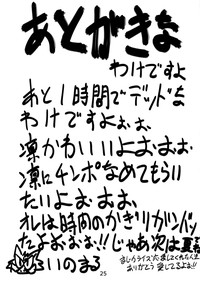 あとがきな
わけですよ
あと1時間でデッドな
わけですよぉぉ。
凛かわいいよおぉぉ。
凛にチンポなめてもらい
たいよおぉぉ。
オレは時間のかぎりガンバッ
たよおぉぉ!!じゃあ次は夏
いのまる
ありがとう愛してるよぉ!!
25